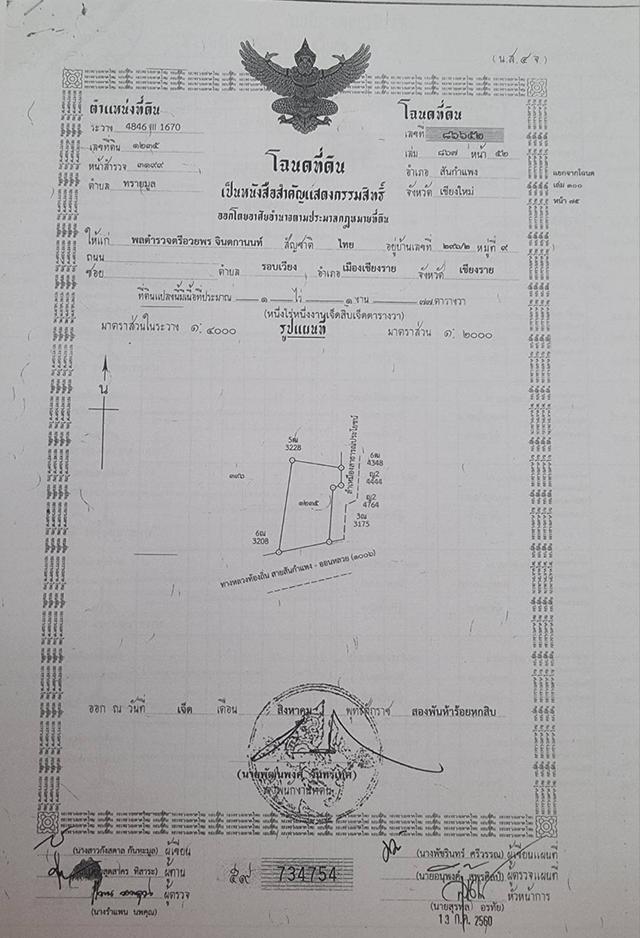 (น.ส. ๔ จ)
ตำแหน่งที่ดิน
ระวาง 4846 III 1670
เลขที่ดิน ๑๒๓๕
หน้าสำรวจ ๓๑๙๙
ตำบล ทรายมูล
โฉนดที่ดิน
เลขที่ ๘๖๖๕๒
เล่ม ๘๖๗ หน้า ๕๒
อำเภอ สันกำแพง
จังหวัด เชียงใหม่
แยกจากโฉนด
เล่ม ๓๐๐
หน้า ๗๕
โฉนดที่ดิน
เป็นหนังสือสำคัญแสดงกรรมสิทธิ์
ออกโดยอาศัยอำนาจตามประมวลกฎหมายที่ดิน
ให้แก่ พลตำรวจตรีอวยพร จินตกานนท์ สัญชาติ ไทย อยู่บ้านเลขที่ ๒๙๖/๒ หมู่ที่ ๙
ถนน
ซอย ตำบล รอบเวียง อำเภอ เมืองเชียงราย จังหวัด เชียงราย
ที่ดินแปลงนี้มีเนื้อที่ประมาณ ๑ ไร่ ๑ งาน ๗๗ ตารางวา
(หนึ่งไร่หนึ่งงานเจ็ดสิบเจ็ดตารางวา)
มาตราส่วนในระวาง ๑: ๔๐๐๐ รูปแผนที่ มาตราส่วน ๑: ๒๐๐๐
น
5ฒ
3228
๓๗๖
๑๒๓๕
ลำเหมืองสาธารณประโยชน์
6ฒ
4348
ญ2
4444
ญ2
4764
3ณ
3175
6ณ
3208
ทางหลวงท้องถิ่น สายสันกำแพง - ออนหลวย (๑๐๐๖)
ออก ณ วันที่ เจ็ด เดือน สิงหาคม พุทธศักราช สองพันห้าร้อยหกสิบ
เจ้าพนักงานที่ดิน
(นางสาวกังสดาล กันทะมูล) ผู้เขียน
ผู้ทาน
ผู้ตรวจ
(นางรำแพน นพคุณ)
๕๙ 734754
(นางพัชรินทร์ ศรีวรรณ) ผู้เขียนแผนที่
ผู้ตรวจแผนที่
หัวหน้าการ
13 ก.ค. 2560